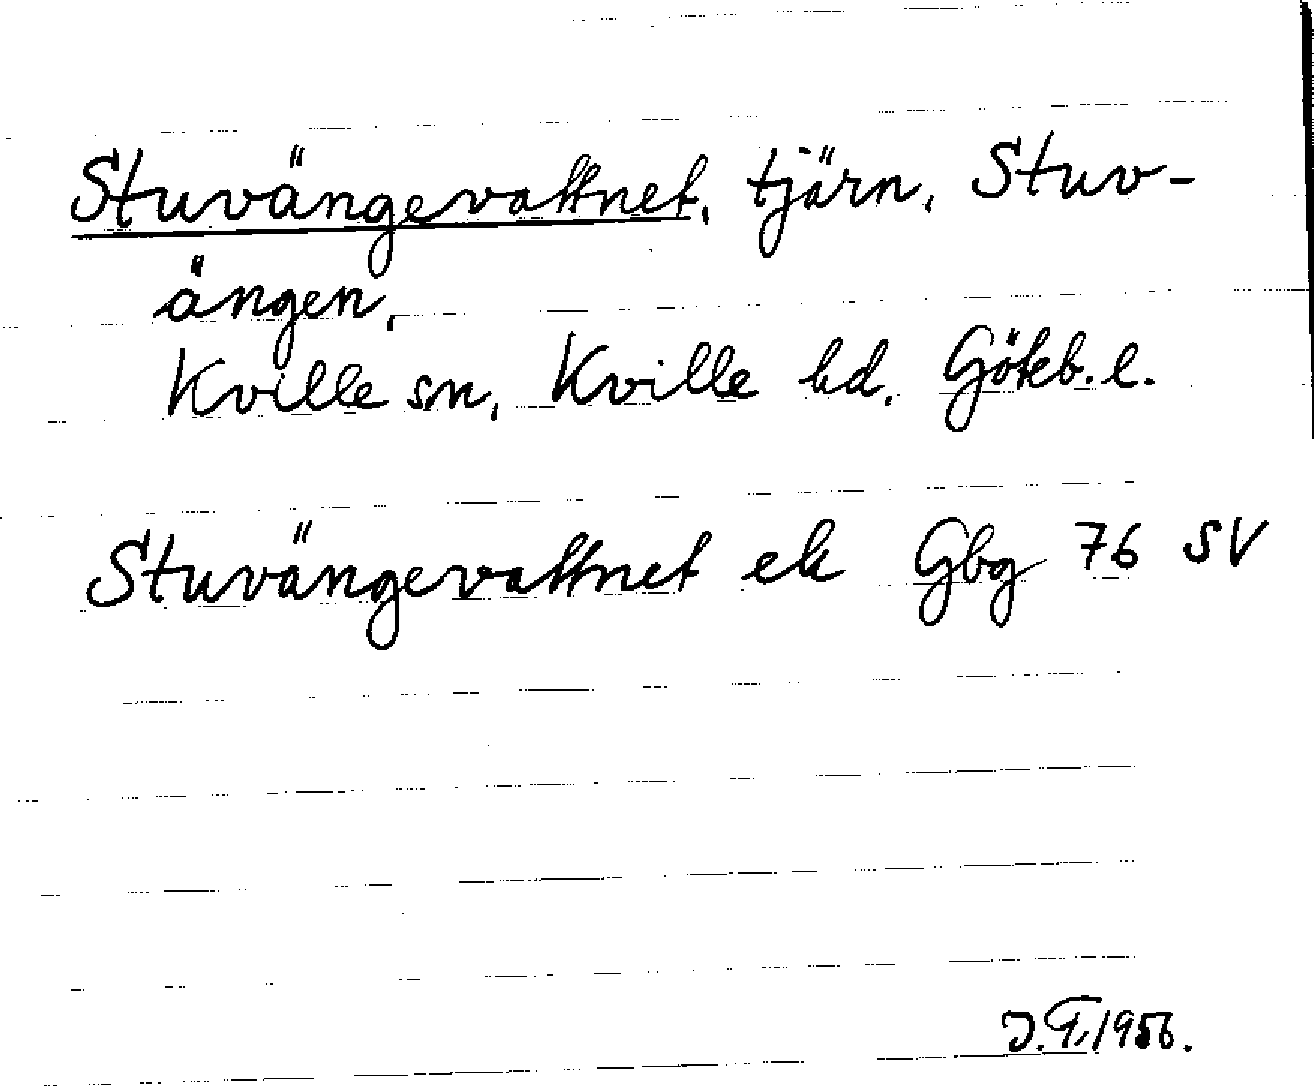 Stuvängevattnet, tjärn, Stuv-
ängen,
Kville sn, Kville hd, Göteb. l.
Stuvängevattnet ek Gbg 76 SV
J.T. 1956.